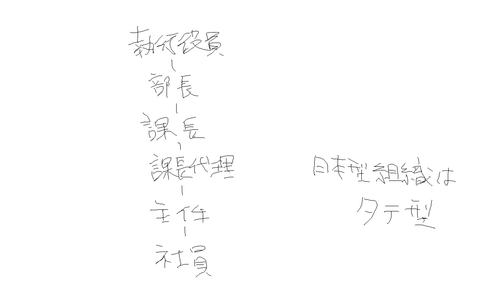 執行役員
部長
課長
課長代理
主任
社員
日本型組織は
タテ型